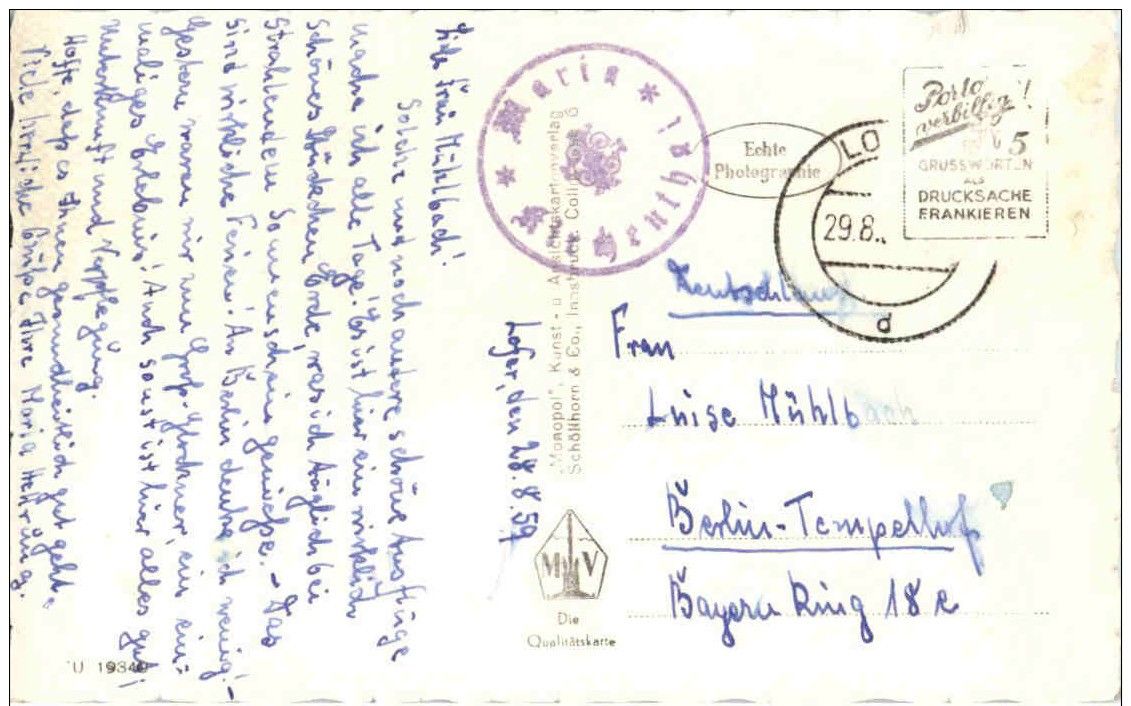 Lofer, den 28.8.59
Liebe Frau Mühlbach!
Solche und noch andere schöne Ausflüge
mache ich alle Tage. Es ist hier ein wirklich
schönes Stückchen Erde, was ich täglich bei
strahlendem Sonnenschein genieße. - Das
sind wirkliche Ferien! An Berlin denke ich wenig! -
Gestern waren wir am Groß-Glockner, ein ein-
maliges Erlebnis! Auch sonst ist hier alles gut!
Unterkunft und Verpflegung.
Hoffe, daß es Ihnen gesundheitlich gut geht.
Viele herzliche Grüße Ihre Maria Hehrung.
U 19340
"Monopol", Kunst- u. Ansichtskartenverlag
Schöllhorn & Co., Innsbruck,
M V
Die
Qualitätskarte
* Maria *
Echte
Photographie
LO
29.8.
d
Porto
verbilligt!
5
GRUSSWORTEN
ALS
DRUCKSACHE
FRANKIEREN
Deutschland
Frau
Luise Mühlbach
Berlin-Tempelhof
Bayern Ring 18